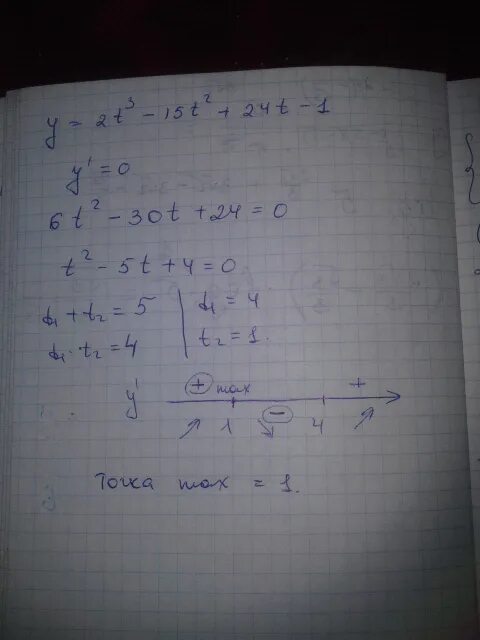 y = 2t³ - 15t² + 24t - 1
y' = 0
6t² - 30t + 24 = 0
t² - 5t + 4 = 0
t₁ + t₂ = 5 | t₁ = 4
t₁ · t₂ = 4 | t₂ = 1.
y' + max - +
1 4
Точка max = 1.